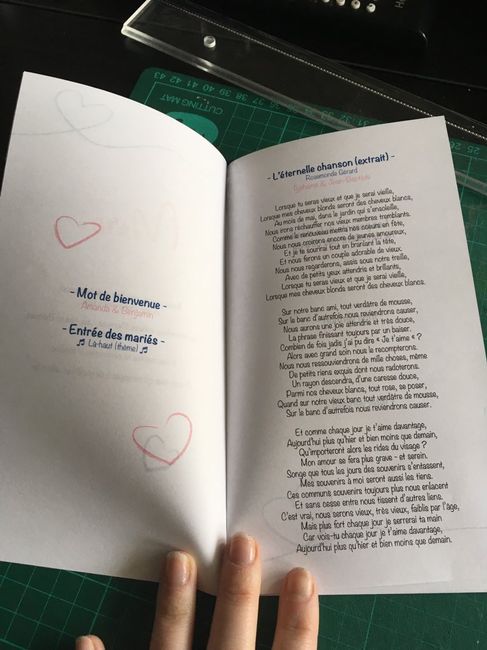 CUTTING MAT
- Mot de bienvenue -
Amanda & Benjamin
- Entrée des mariés -
♫ Là-haut (thème) ♫
- L'éternelle chanson (extrait) -
Rosemonde Gérard
& Jean-Baptiste
Lorsque tu seras vieux et que je serai vieille,
Lorsque mes cheveux blonds seront des cheveux blancs,
Au mois de mai, dans le jardin qui s'ensoleille,
Nous irons réchauffer nos vieux membres tremblants.
Comme le renouveau mettra nos cœurs en fête,
Nous nous croirons encore de jeunes amoureux,
Et je te sourirai tout en branlant la tête,
Et nous ferons un couple adorable de vieux.
Nous nous regarderons, assis sous notre treille,
Avec de petits yeux attendris et brillants,
Lorsque tu seras vieux et que je serai vieille,
Lorsque mes cheveux blonds seront des cheveux blancs.
Sur notre banc ami, tout verdâtre de mousse,
Sur le banc d'autrefois nous reviendrons causer,
Nous aurons une joie attendrie et très douce,
La phrase finissant toujours par un baiser.
Combien de fois jadis j'ai pu dire « Je t'aime » ?
Alors avec grand soin nous le recompterons.
Nous nous ressouviendrons de mille choses, même
De petits riens exquis dont nous radoterons.
Un rayon descendra, d'une caresse douce,
Parmi nos cheveux blancs, tout rose, se poser,
Quand sur notre vieux banc tout verdâtre de mousse,
Sur le banc d'autrefois nous reviendrons causer.
Et comme chaque jour je t'aime davantage,
Aujourd'hui plus qu'hier et bien moins que demain,
Qu'importeront alors les rides du visage ?
Mon amour se fera plus grave - et serein.
Songe que tous les jours des souvenirs s'entassent,
Mes souvenirs à moi seront aussi les tiens.
Ces communs souvenirs toujours plus nous enlacent
Et sans cesse entre nous tissent d'autres liens.
C'est vrai, nous serons vieux, très vieux, faiblis par l'âge,
Mais plus fort chaque jour je serrerai ta main
Car vois-tu chaque jour je t'aime davantage,
Aujourd'hui plus qu'hier et bien moins que demain.